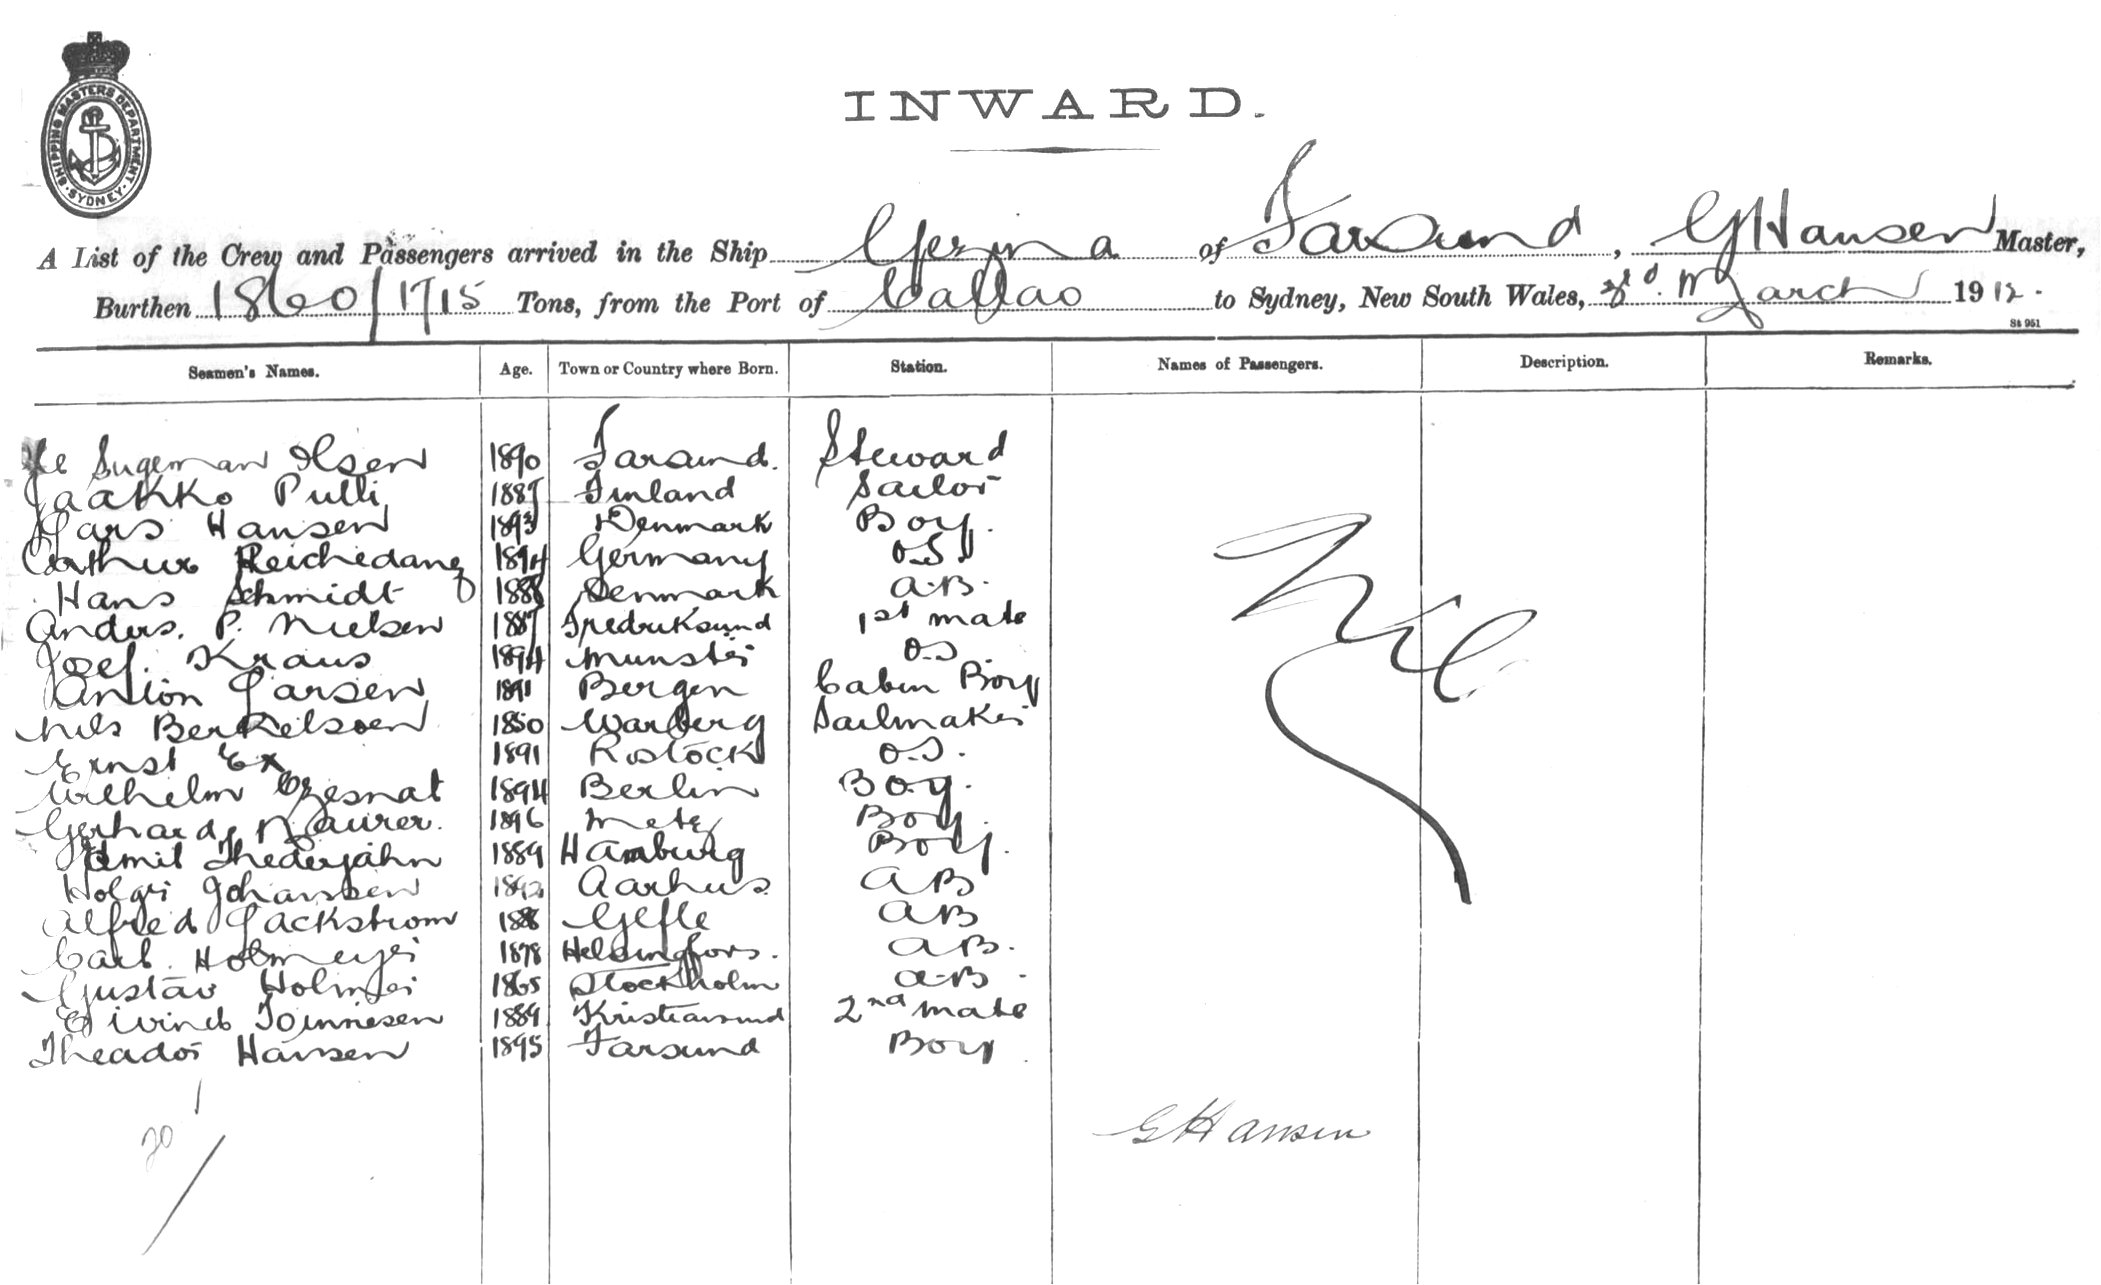 SHIPPING MASTERS DEPARTMENT · SYDNEY ·
INWARD.
A List of the Crew and Passengers arrived in the Ship Gezina of Farsund, G Hansen Master,
Burthen 1860/1715 Tons, from the Port of Callao to Sydney, New South Wales, March 1912.
St 951
Seamen's Names. Age. Town or Country where Born. Station. Names of Passengers. Description. Remarks.
Olsen 1890 Farsund. Steward
Jaakko Pulli 1887 Finland Sailor
Lars Hansen 1893 Denmark Boy.
Arthur Reichedanz 1894 Germany O.S
Hans Schmidt 1888 Denmark A.B.
Anders. P. Nielsen 1887 Fredriksund 1st mate
Josef. Kraus 1894 Munster O.S
Anton Larsen 1891 Bergen Cabin Boy
Nils Berkelsoen 1850 Warberg Sailmaker
Ernst Ex 1891 Rostock O.S.
Wilhelm Czesnat 1894 Berlin Boy.
Gerhard Maurer. 1896 Metz Boy.
Emil Thederjahn 1889 Hamburg Boy.
Holger Johansen Aarhus AB
Alfred Lackstrom 1888 Gefle AB
Carl. Holmeyer 1878 Helsingfors. AB.
Gustav Holmer 1865 Stockholm A.B
Eivind Tonnesen 1889 Kristiansund 2nd mate
Theador Hansen 1895 Farsund Boy
Nil
G Hansen
20